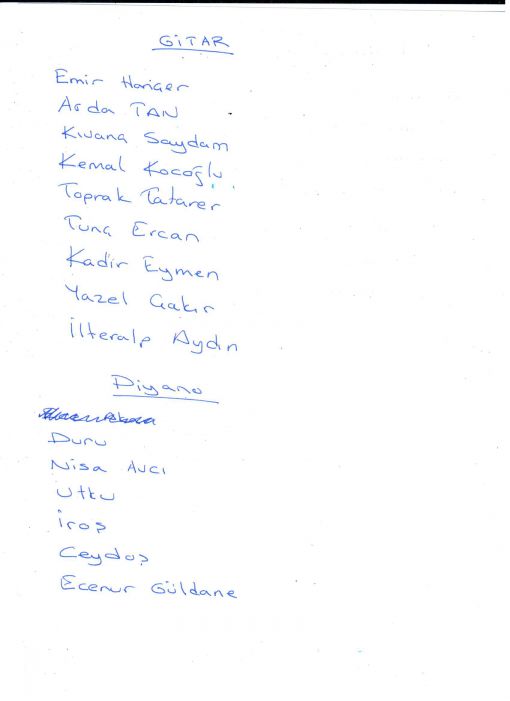 GİTAR
Emir
Arda TAN
Saydam
Kemal Kocoğlu
Toprak Tatarer
Tuna Ercan
Kadir Eymen
Yazel Cakır
İlteralp Aydın
Piyano
Duru
Nisa Avcı
Utku
Ceydoş
Ecenur Güldane